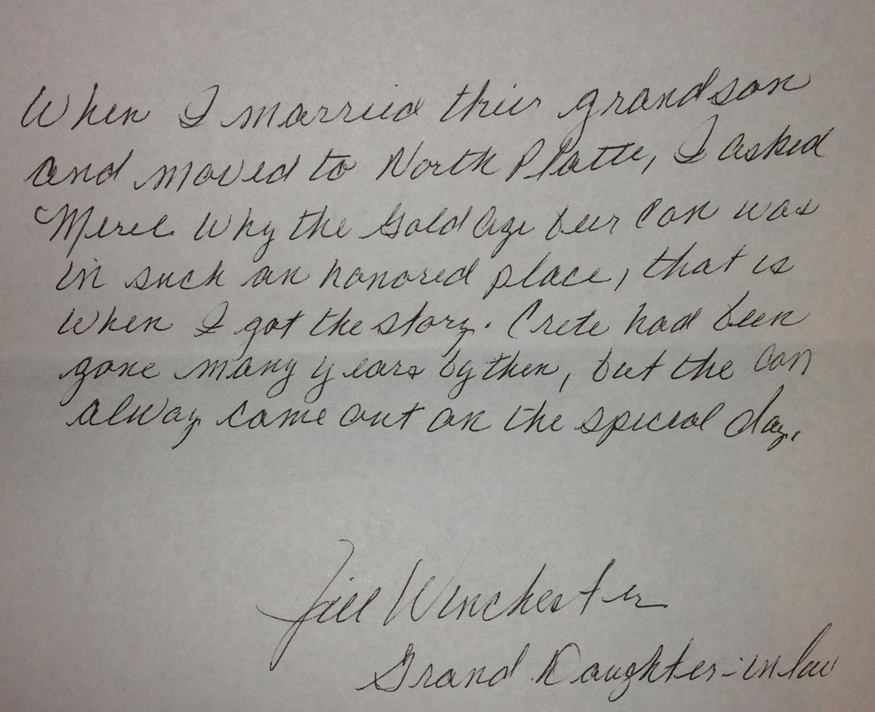 When I married thier grandson
and moved to North Platte, I asked
Merle Why the Gold Age beer Can was
in such an honored place, that is
when I got the story. Crete had been
gone many years by then, but the Can
alway came out on the special day.
Jill Winchester
Grand Daughter-in law